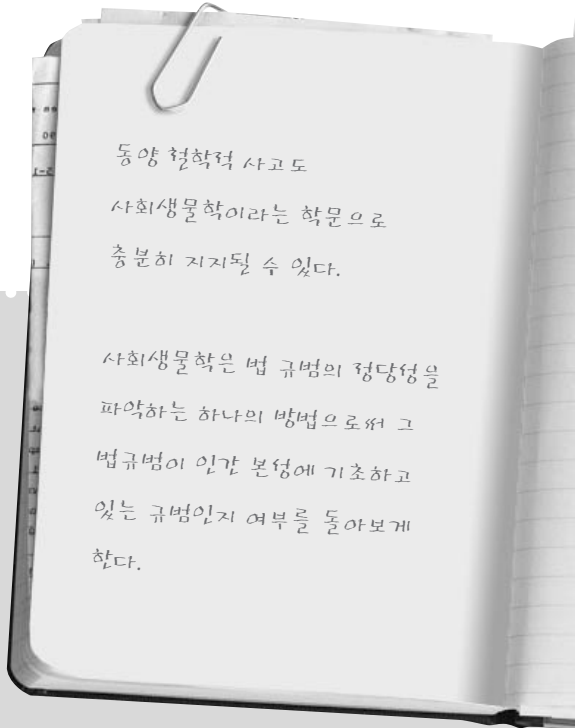 동양 철학적 사고도
사회생물학이라는 학문으로
충분히 지지될 수 있다.
사회생물학은 법 규범의 정당성을
파악하는 하나의 방법으로써 그
법규범이 인간 본성에 기초하고
있는 규범인지 여부를 돌아보게
한다.